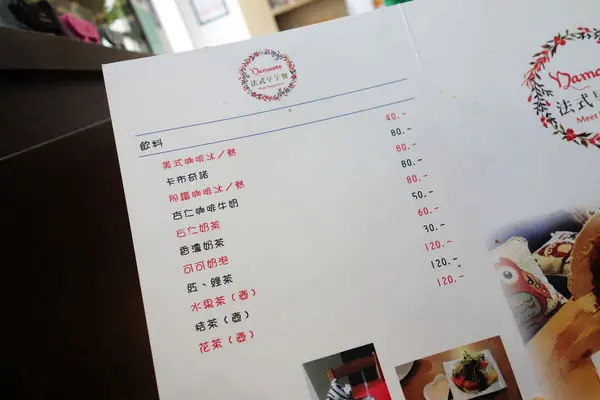 Namaste
法式早午餐
飲料
美式咖啡冰／熱 40.-
卡布奇諾 80.-
那鐵咖啡冰／熱 80.-
杏仁咖啡牛奶 80.-
杏仁奶茶 80.-
香濃奶茶 50.-
可可奶泡 60.-
紅、綠茶 30.-
水果茶（壺） 120.-
桔茶（壺） 120.-
花茶（壺） 120.-
Namaste
法式
Meet